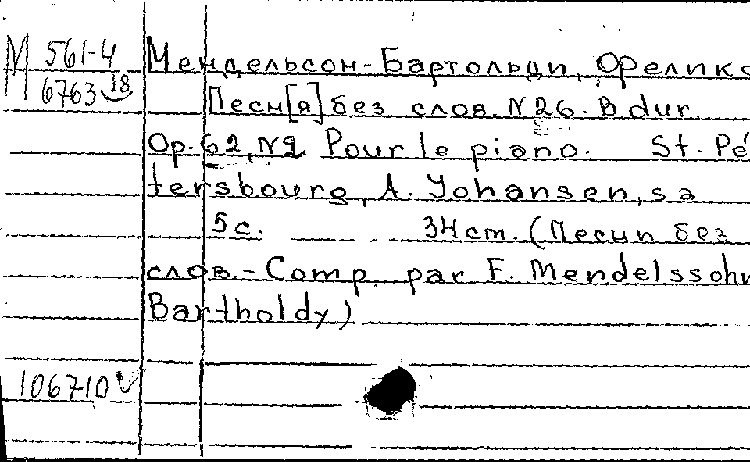 М 561-4
6763 18
Мендельсон-Бартольди, Феликс
Песн[я] без слов. N 26. B dur.
Op. 62, N2 Pour le piano. St. Pé
tersbourg, A. Johansen, s a
5 с. 34 cm. (Песни без
слов. - Comp. par F. Mendelssohn
Bartholdy)
106710